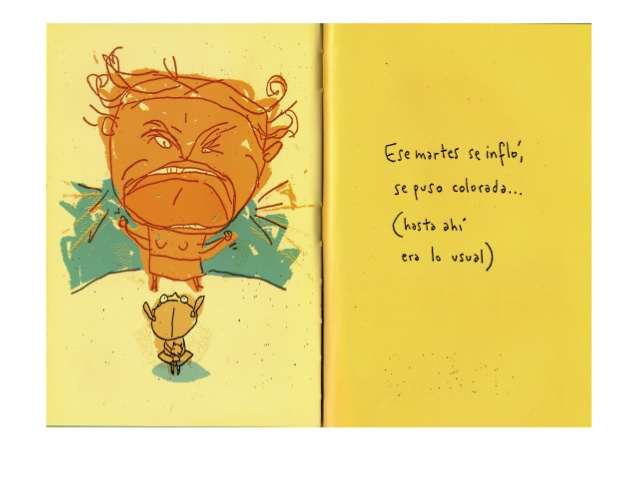 Ese martes se infló,
se puso colorada...
(hasta ahí
era lo usual)